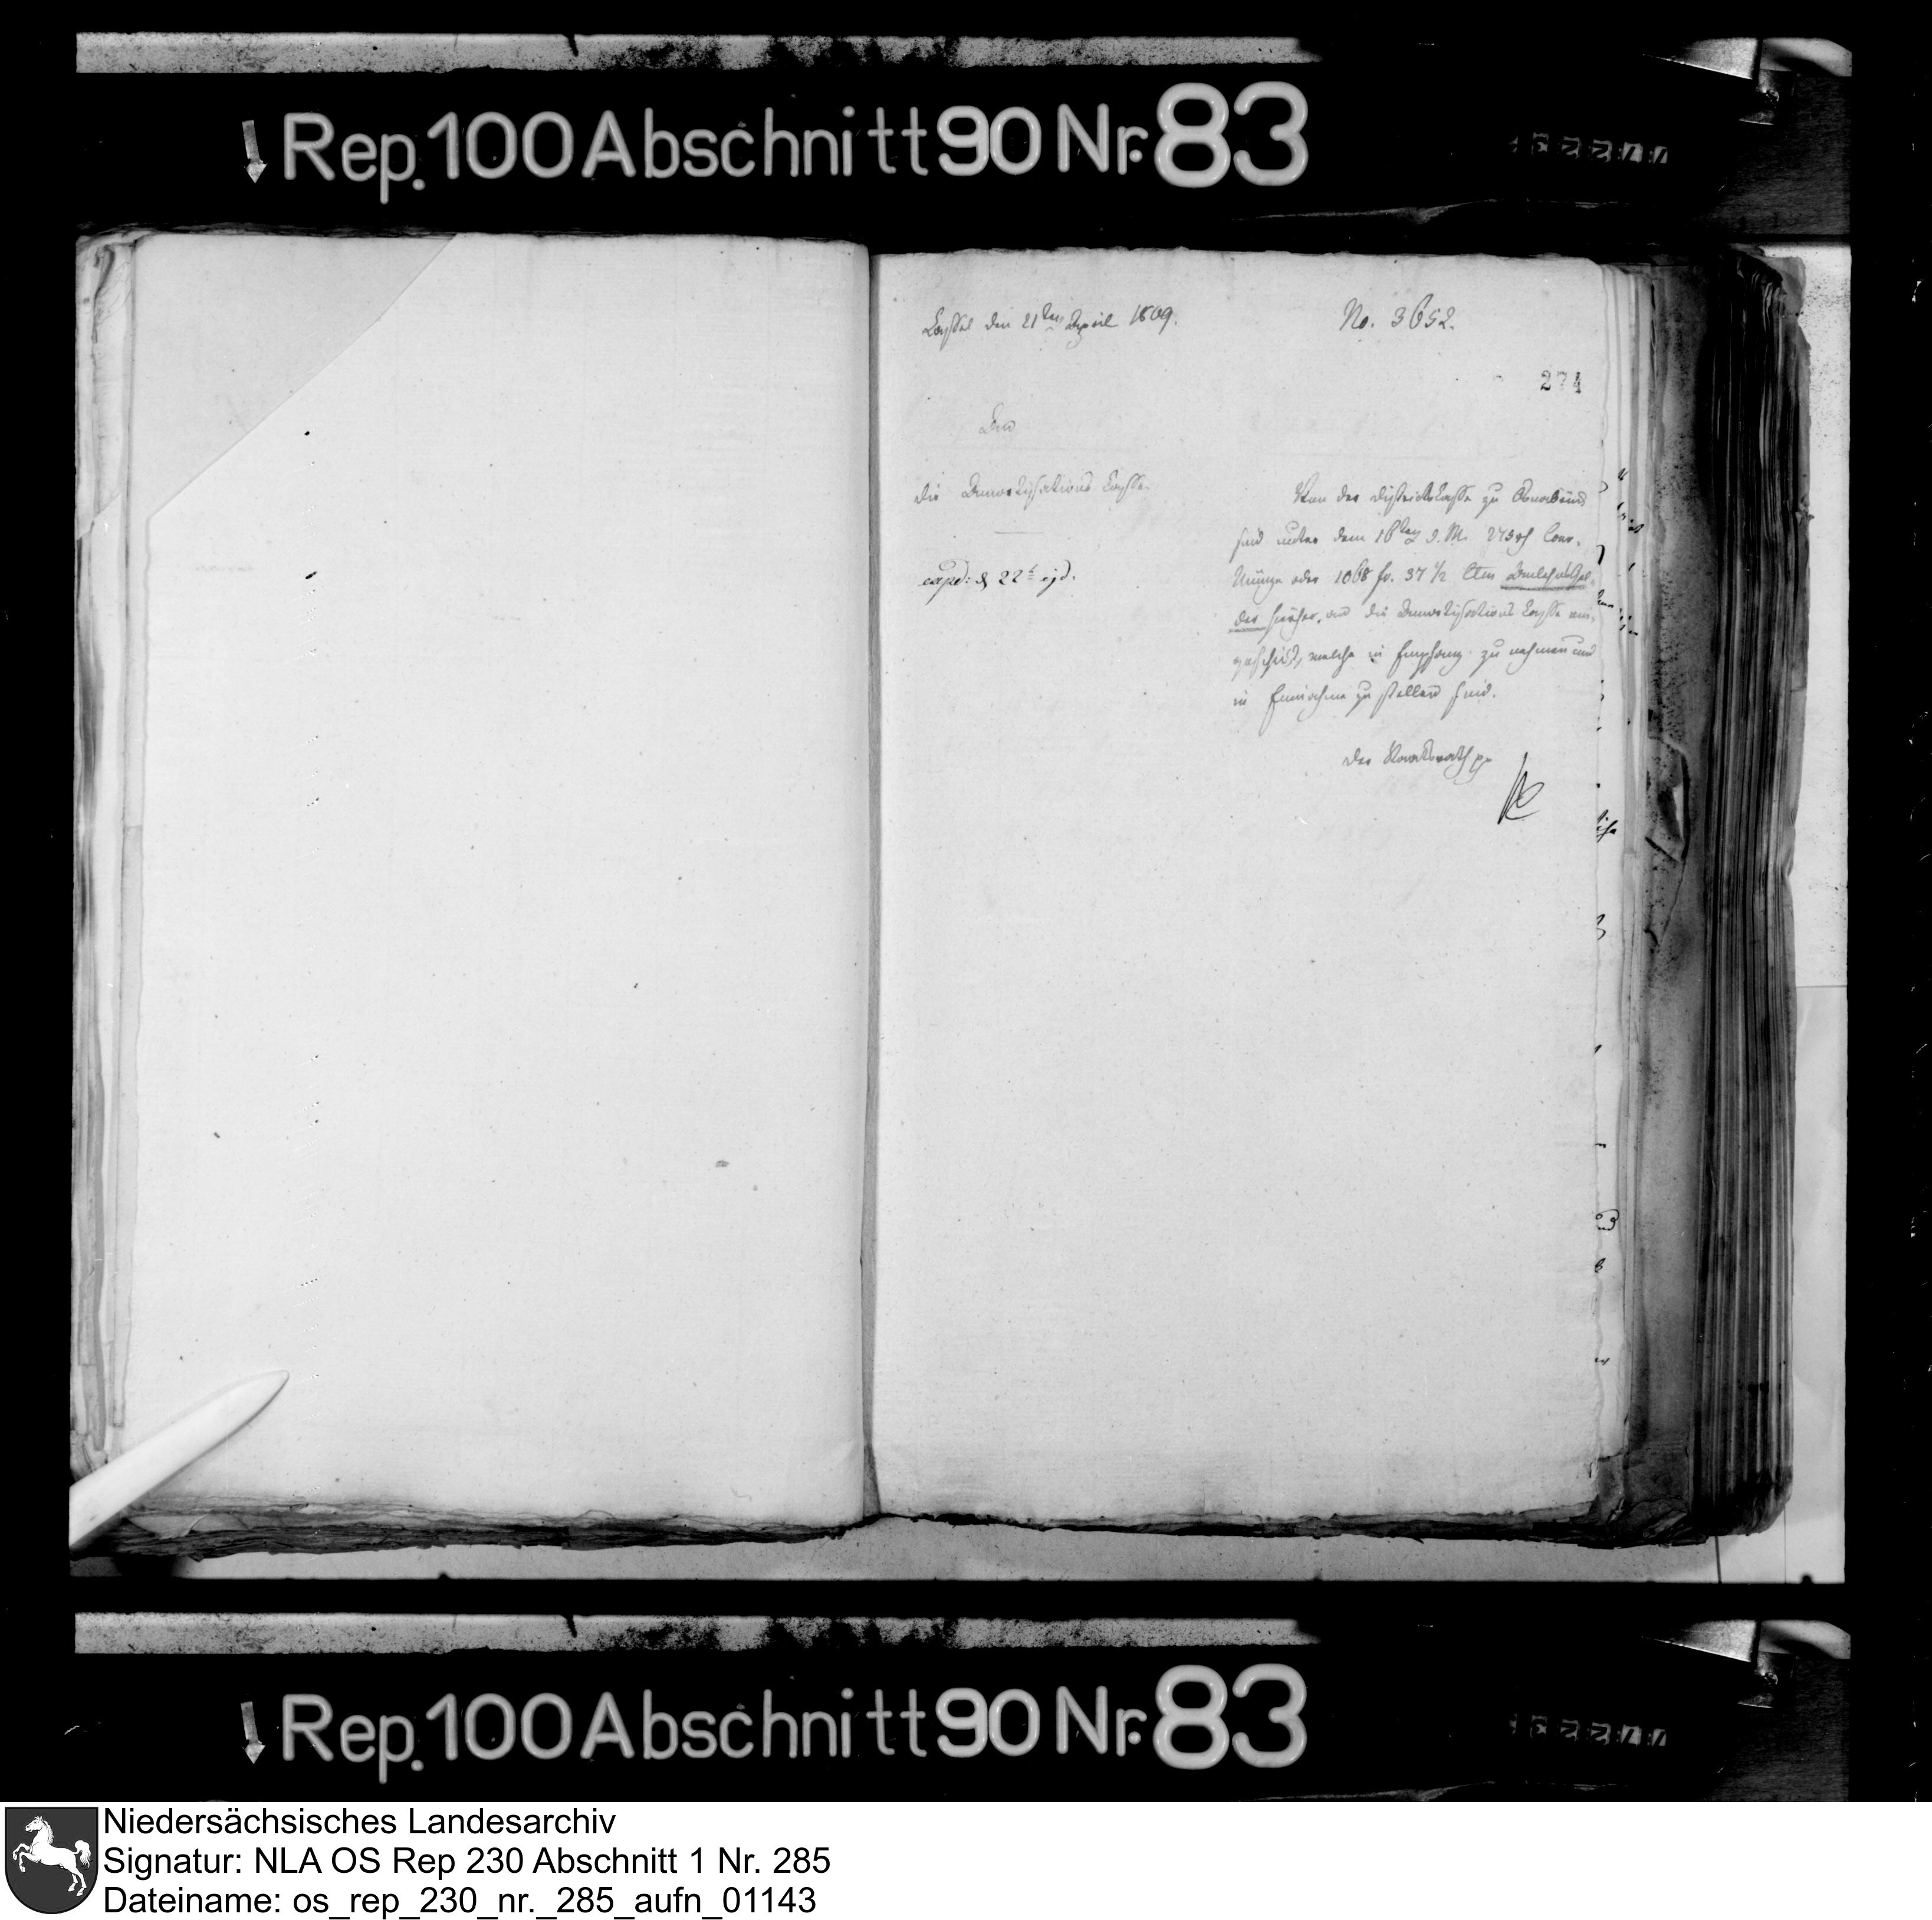 Rep. 100 Abschnitt 90 Nr. 83
Cassel den 21ten April 1809.
No. 3652.
274
An
die Amortisations Casse
expd: d 22t ejd.
Von der Districts Casse zu Osnabrück
sind unter dem 16ten d. M. Conv.
Münze oder 1068 fr. 37 1/2 Ctm Anleihe Gel-
der hierher, an die Amortisations Casse ein-
geschickt, welche in Empfang zu nehmen und
in Einnahme zu stellen sind.
Der Staatsrath pp
Rep. 100 Abschnitt 90 Nr. 83
Niedersächsisches Landesarchiv
Signatur: NLA OS Rep 230 Abschnitt 1 Nr. 285
Dateiname: os_rep_230_nr._285_aufn_01143